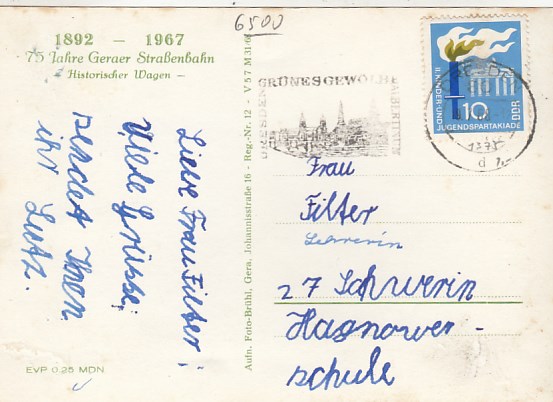 6500
1892 – 1967
75 Jahre Geraer Straßenbahn
– Historischer Wagen –
Liebe Frau Filter!
Viele Grüsse
sendet Ihnen
ihr Lutz.
EVP 0.25 MDN
Aufn. Foto-Brühl, Gera, Johannisstraße 16 - Reg.-Nr. 12 - V 57 M 31/6
DRESDEN
GRÜNES GEWÖLBE
ALBERTINUM
II. KINDER-UND
JUGENDSPARTAKIADE
10
DDR
Frau
Filter
Lehrerin
27 Schwerin
Hagnower-
schule